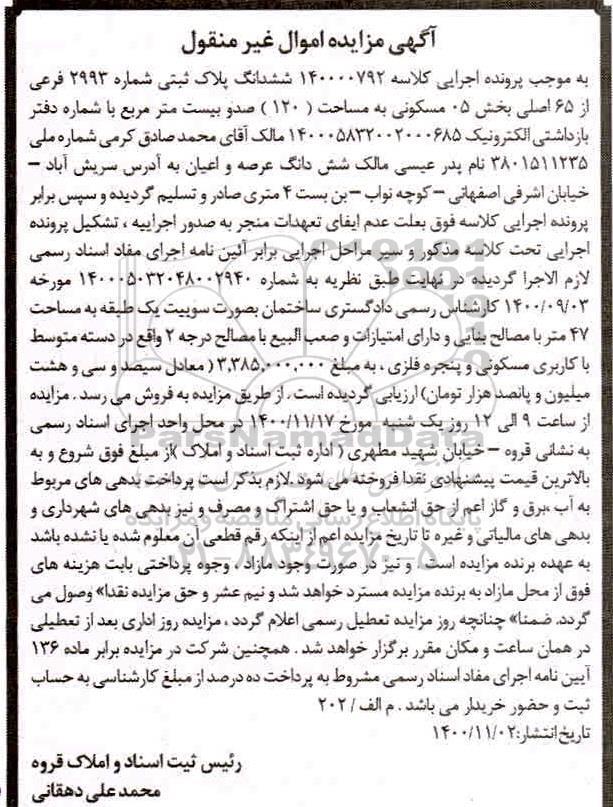 آگهی مزایده اموال غیر منقول
به موجب پرونده اجرایی کلاسه ۱۴۰۰۰۰۷۹۲ ششدانگ پلاک ثبتی شماره ۲۹۹۳ فرعی
از ۶۵ اصلی بخش ۰۵ مسکونی به مساحت ( ۱۲۰ ) صدو بیست متر مربع با شماره دفتر
بازداشتی الکترونیک ۱۴۰۰۰۵۸۳۲۰۰۲۰۰۰۶۸۵ مالک آقای محمد صادق کرمی شماره ملی
۳۸۰۱۵۱۱۲۳۵ نام پدر عیسی مالک شش دانگ عرصه و اعیان به آدرس سریش آباد –
خیابان اشرفی اصفهانی – کوچه نواب – بن بست ۴ متری صادر و تسلیم گردیده و سپس برابر
پرونده اجرایی کلاسه فوق بعلت عدم ایفای تعهدات منجر به صدور اجراییه ، تشکیل پرونده
اجرایی تحت کلاسه مذکور و سیر مراحل اجرایی برابر آئین نامه اجرای مفاد اسناد رسمی
لازم الاجرا گردیده در نهایت طبق نظریه به شماره ۱۴۰۰۰۵۰۳۲۰۴۸۰۰۲۹۴۰ مورخه
۱۴۰۰/۰۹/۰۳ کارشناس رسمی دادگستری ساختمان بصورت سوییت یک طبقه به مساحت
۴۷ متر با مصالح بنایی و دارای امتیازات و صعب البیع با مصالح درجه ۲ واقع در دسته متوسط
با کاربری مسکونی و پنجره فلزی ، به مبلغ ۳,۳۸۵,۰۰۰,۰۰۰ ( معادل سیصد و سی و هشت
میلیون و پانصد هزار تومان) ارزیابی گردیده است . از طریق مزایده به فروش می رسد . مزایده
از ساعت ۹ الی ۱۲ روز یک شنبه مورخ ۱۴۰۰/۱۱/۱۷ در محل واحد اجرای اسناد رسمی
به نشانی قروه – خیابان شهید مطهری ( اداره ثبت اسناد و املاک )از مبلغ فوق شروع و به
بالاترین قیمت پیشنهادی نقدا فروخته می شود .لازم بذکر است پرداخت بدهی های مربوط
به آب ،برق و گاز اعم از حق انشعاب و یا حق اشتراک و مصرف و نیز بدهی های شهرداری و
بدهی های مالیاتی و غیره تا تاریخ مزایده اعم از اینکه رقم قطعی آن معلوم شده یا نشده باشد
به عهده برنده مزایده است ، و نیز در صورت وجود مازاد ، وجوه پرداختی بابت هزینه های
فوق از محل مازاد به برنده مزایده مسترد خواهد شد و نیم عشر و حق مزایده نقدا» وصول می
گردد. ضمنا» چنانچه روز مزایده تعطیل رسمی اعلام گردد ، مزایده روز اداری بعد از تعطیلی
در همان ساعت و مکان مقرر برگزار خواهد شد . همچنین شرکت در مزایده برابر ماده ۱۳۶
آیین نامه اجرای مفاد اسناد رسمی مشروط به پرداخت ده درصد از مبلغ کارشناسی به حساب
ثبت و حضور خریدار می باشد . م الف / ۲۰۲
تاریخ انتشار:۱۴۰۰/۱۱/۰۲
رئیس ثبت اسناد و املاک قروه
محمد علی دهقانی
ParsNamadData
پایگاه اطلاع رسانی مناقصه و مزایده
۰۲۱-۸۸۳۴۹۶۷۰-۵